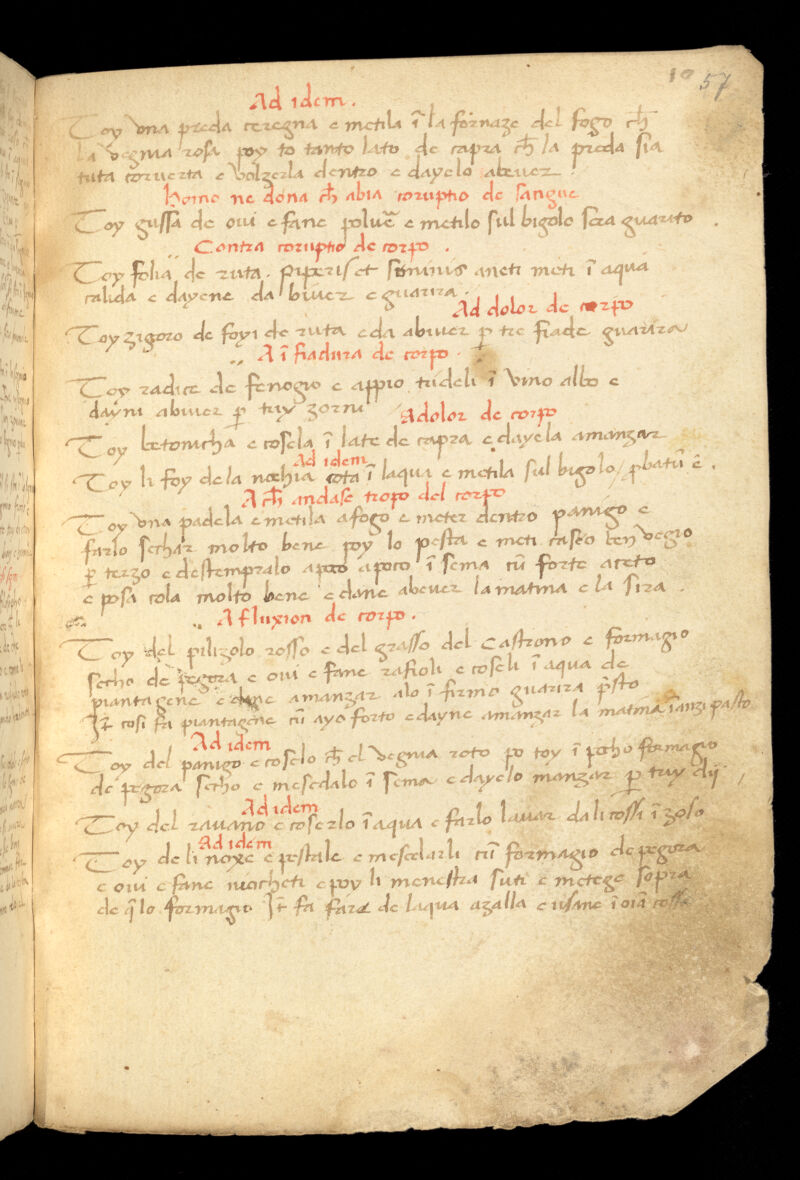 10 57
Ad idem.
Toy una preda ceregna e metila ī la fornaze del fogo ch̄
la vegnia rosa poy to tanto lato de capra ch̄ la preda sia
tuta coruerta e volzerla dentro e dayelo abeuer.
homo ne dona ch̄ abia coruptio de sangue
Toy gussa de oui e fane poluē e metilo sul bigolo sera guarito.
Contra coruptio de corpo.
Toy folia de ruta. piperis et siminis aneti meti ī aqua
calida e dayene da biuer e guarira.
Ad dolor de corpo
Toy zigoro de foyi de ruta e da abiuer p̄ tre fiade guarira
A ī fiadura de corpo.
Toy radice de fenogio e appio trideli ī vino albo e
dayni abiuer p̄ truy zorni
Adolor de corpo
Toy betonicha e cosela ī late de capra e dayela amanzar
Ad idem
Toy li foy de la nochia cota ī laqua e metila sul bigolo / p̄batū ē.
A ch̄ andase tropo del corpo
Toy una padela e metila afogo e meter dentro panigo e
farlo sechar molto bene poy lo pesta e meti caseo ben vegio
p̄ terzo e destempralo apoco apoco ī sema cū forte aceto
e posa cola molto bene e dane abeuer la matina e la sira.
A fluxion de corpo.
Toy del pilizolo rosso e del grasso del Castrono e formagio
secho de pegora e oui e fane rafioli e coseli ī aqua de
piantagene e dane amanzar alo ī firmo guarira p̄sto
It̄ cosi fa piantagene cū ayo forto e dayne amanzar la matina īanzi pasto
Ad idem
Toy del panigo e coselo ch̄ el vegnia roto po toy ī pocho formagio
de pegora secho e mesedalo ī sema e dayelo manzar p̄ truy dij
Ad idem
Toy del rauano e coserlo ī aqua e farlo lauar da li cossi ī zoso
Ad idem
Toy de li noxe e pestale e mesedarli cū formagio de pegora
e oui e fane niocheti e poy li menestra suti e metege sopra
de q̄lo formagio It̄ fa fare de laqua azalla e usane ī oīa cossa